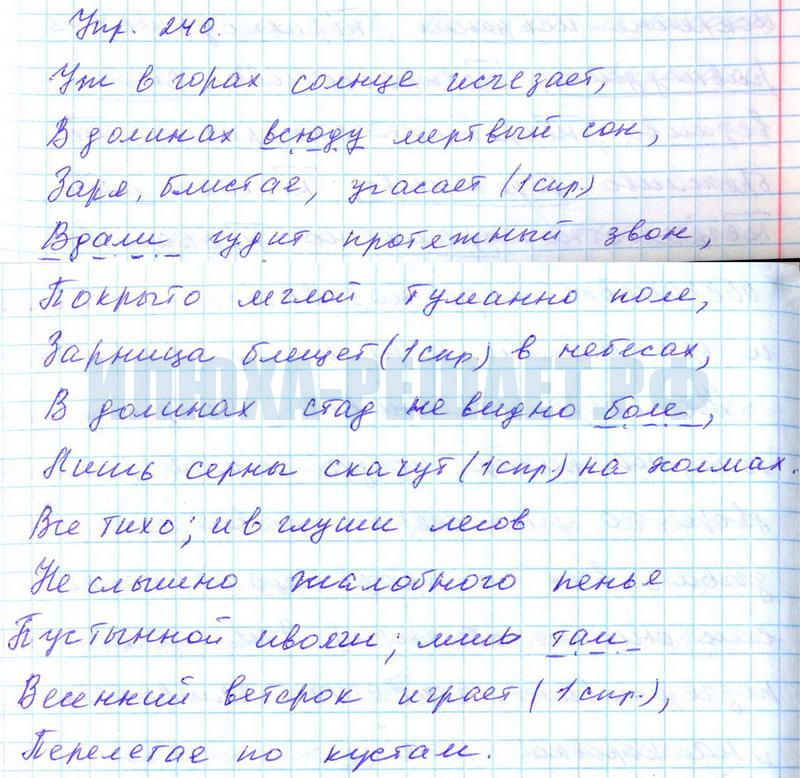 Упр. 240.
Уж в горах солнце исчезает,
В долинах всюду мертвый сон,
Заря, блистая, угасает (1 спр.)
Вдали гудит протяжный звон,
Покрыто мглой туманно поле,
Зарница блещет (1 спр.) в небесах,
ИЛЮХА-РЕШАЕТ.РФ
В долинах стад не видно боле,
Лишь серны скачут (1 спр.) на холмах.
Все тихо; и в глуши лесов
Не слышно жалобного пенья
Пустынной иволги; лишь там
Весенний ветерок играет (1 спр.),
Перелетая по кустам.